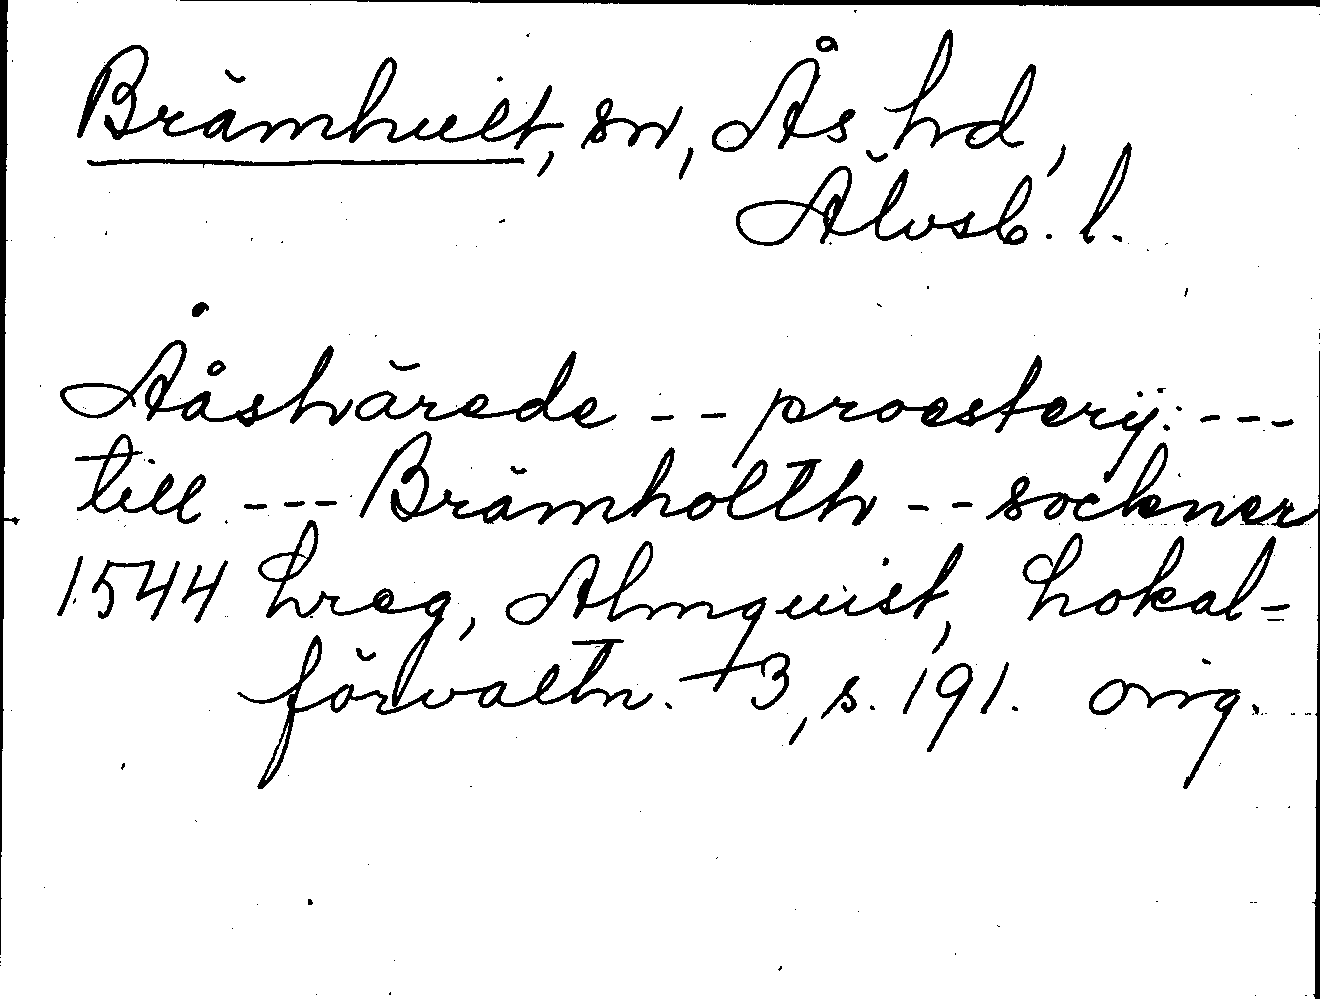 Brämhult, sn, Ås hd,
Älvsb. l.
Ååshärede -- proesterij: ---
till --- Brämholth -- sockner
1544 hreg, Almquist, Lokal-
förvaltn. 3, s. 191. orig.